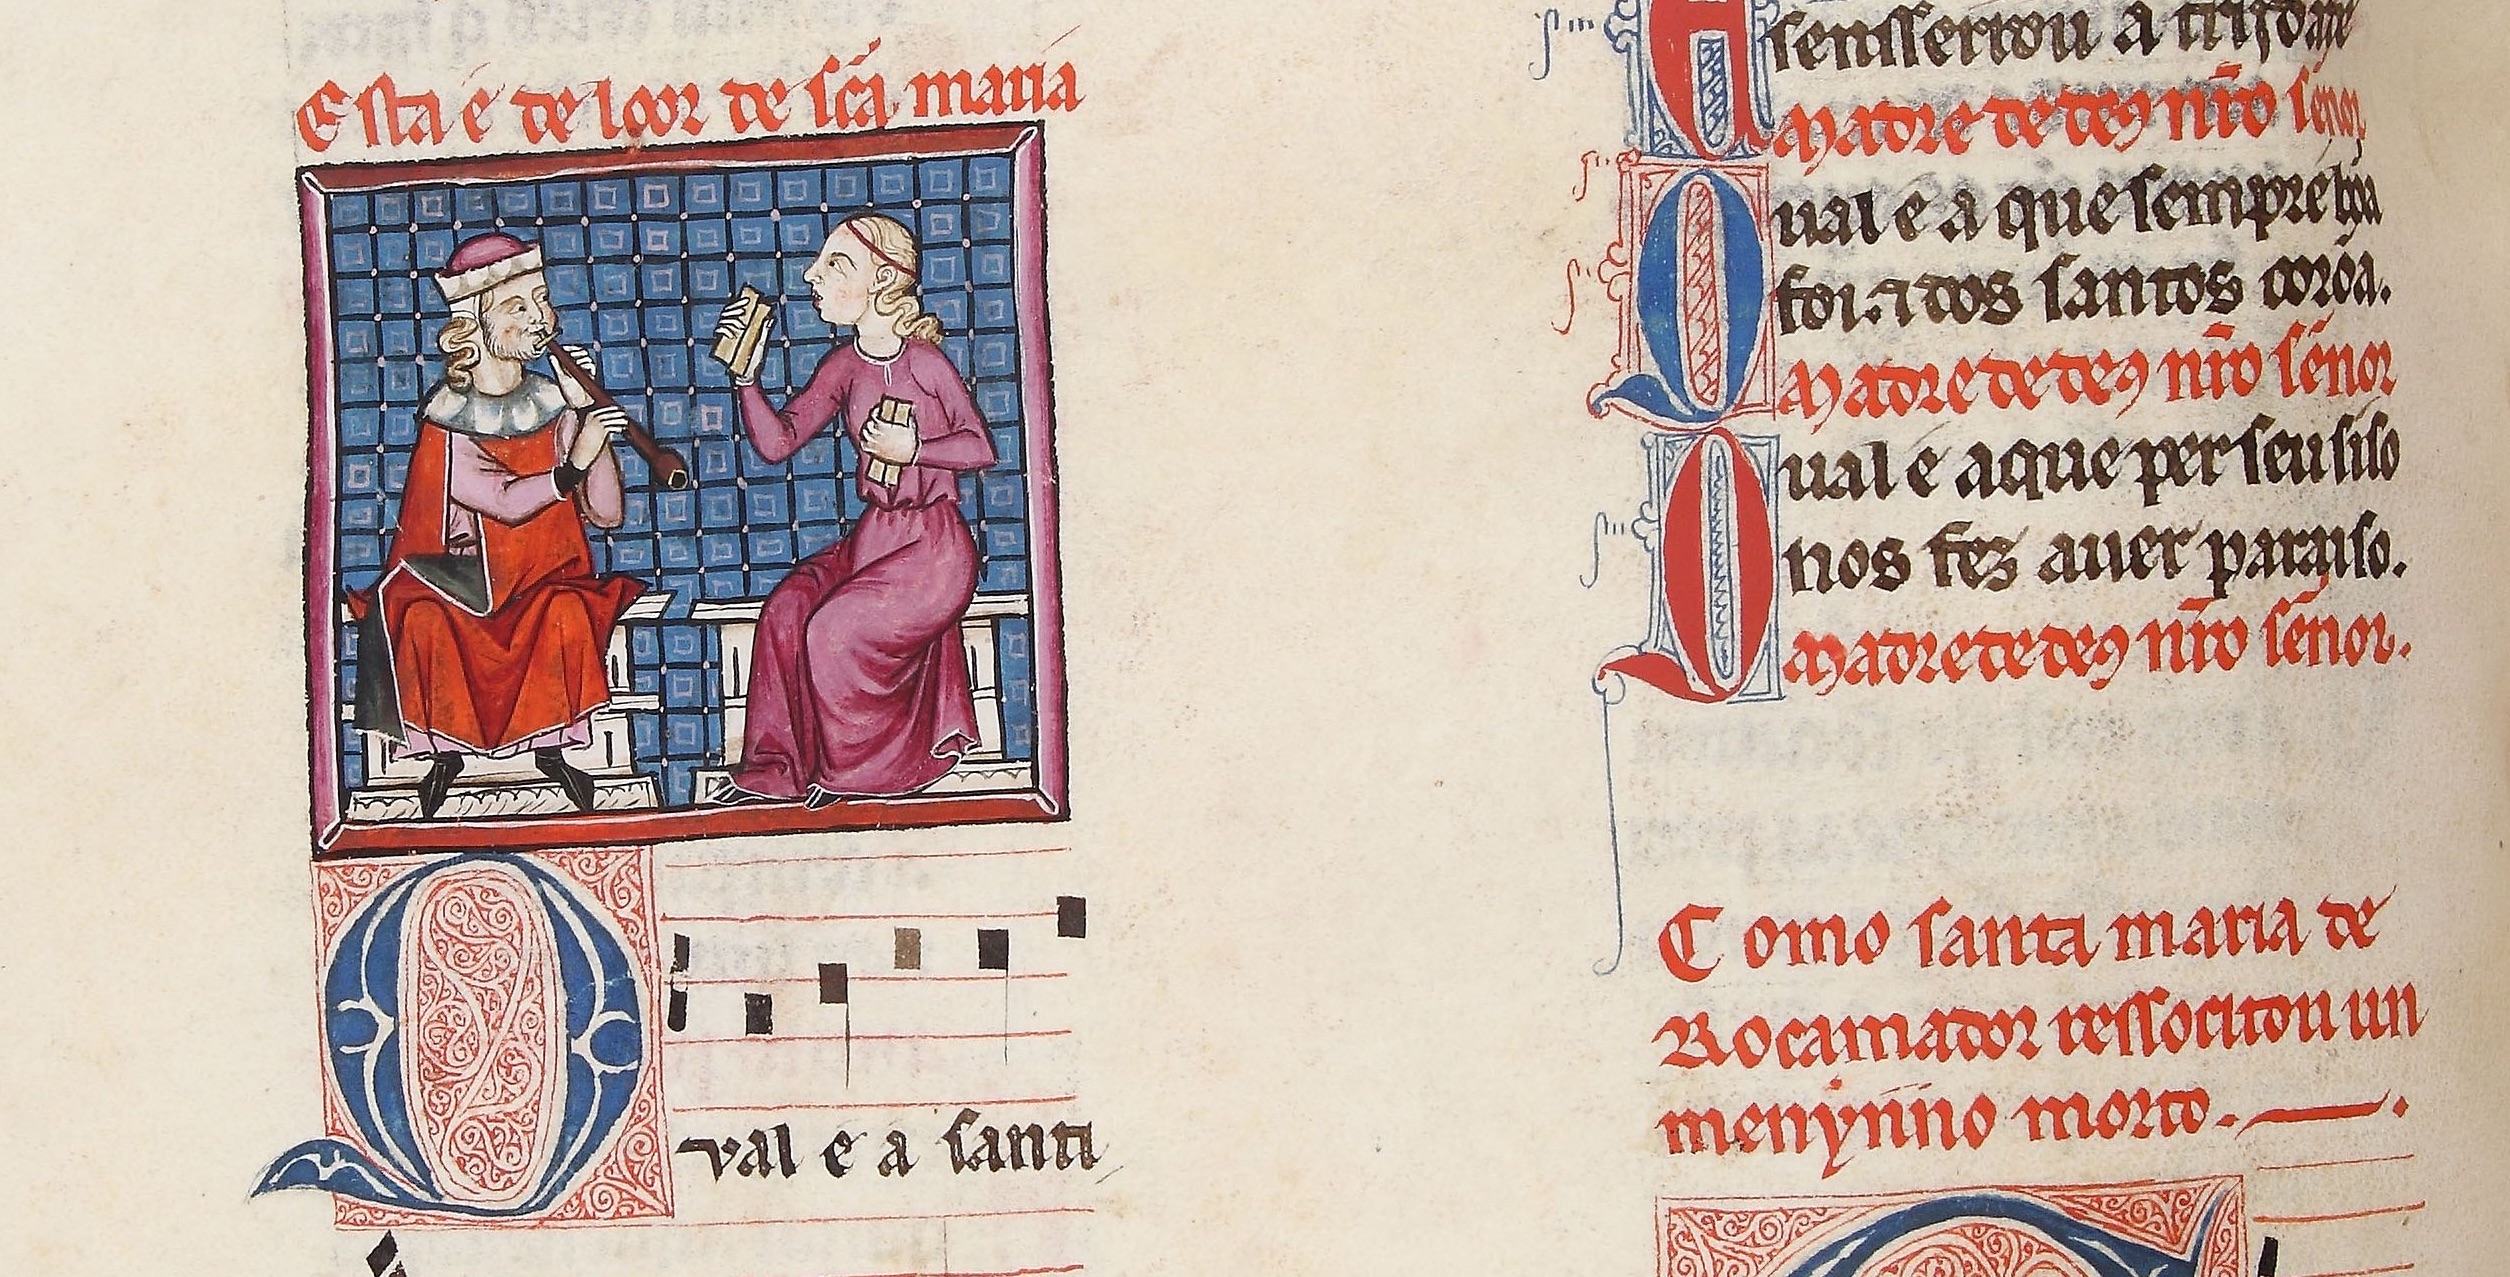 Esta é de loor de sca maria
Qual e a santi
A
ssensserrou a trijdade
Madre de deus nr̄o senor
Qual e a que sempre bõa
foi. ⁊ dos santos corõa.
Madre de deus nr̄o senor
Qual e a que per seu siso
nos fez auer parayso.
Madre de deus nr̄o senor.
Como santa maria de
Rocamador ressocitou un
menynno morto.